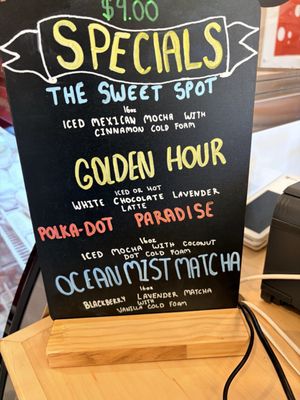 $9.00
SPECIALS
THE SWEET SPOT
16oz
ICED MEXICAN MOCHA WITH
CINNAMON COLD FOAM
GOLDEN HOUR
ICED OR HOT
WHITE CHOCOLATE LAVENDER
LATTE
POLKA-DOT PARADISE
16oz
ICED MOCHA WITH COCONUT
DOT COLD FOAM
OCEAN MIST MATCHA
16oz
BLACKBERRY LAVENDER MATCHA
WITH
VANILLA COLD FOAM